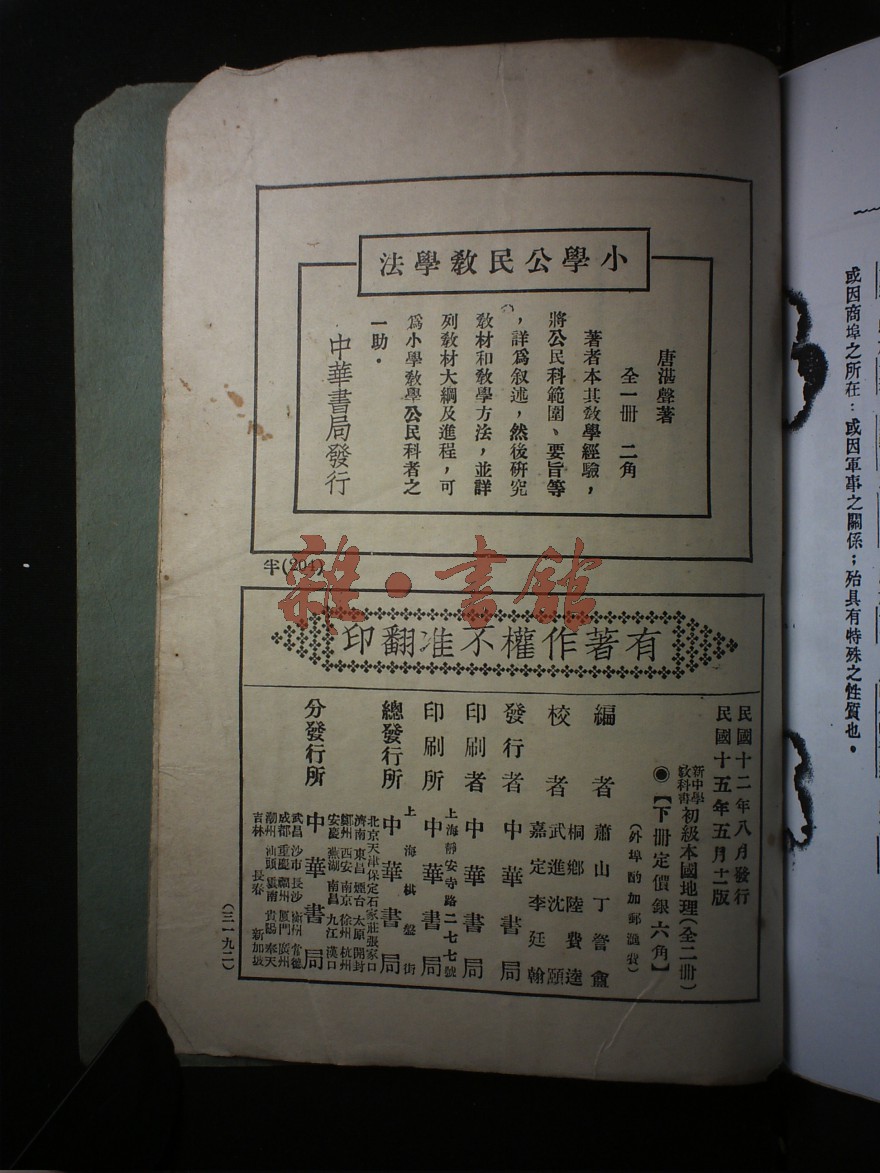 小學公民敎學法
唐湛聲著
全一冊　二角
著者本其敎學經驗，
將公民科範圍、要旨等
，詳爲叙述，然後研究
敎材和敎學方法，並詳
列敎材大綱及進程，可
爲小學敎學公民科者之
一助．
中華書局發行
半(204)
雜·書館
有著作權不准翻印
民國十二年八月發行
民國十五年五月十二版
新中學敎科書初級本國地理(全二冊)
◉【下冊定價銀六角】
(外埠酌加郵滙費)
編者　蕭山丁詧盦
校者　桐鄉陸費逵
武進沈頤
嘉定李廷翰
發行者　中華書局
印刷者　中華書局
印刷所　上海靜安寺路二七七號
中華書局
總發行所　上海棋盤街
中華書局
分發行所　中華書局
北京天津保定石家莊張家口
濟南東昌煙台太原開封
鄭州西安南京徐州杭州
安慶蕪湖南昌九江漢口
武昌沙市長沙衡州常德
成都重慶福州廈門廣州
潮州汕頭雲南貴陽奉天
吉林長春新加坡
(三一九二)
或因商埠之所在：或因軍事之關係；殆具有特殊之性質也．